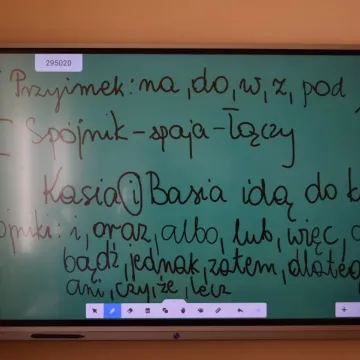 295020
Przyimek: na, do, w, z, pod
Spójnik - spaja - łączy
Kasia i Basia idą do
i, oraz, albo, lub, więc,
bądź, jednak, zatem,
ani, czy, że, lecz